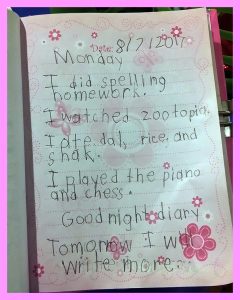 Date: 8/7/2017
Monday
I did spelling
homework.
I watched zootopia.
I ate dal, rice, and
shak.
I played the piano
and chess.
Good night diary.
Tomorrow I
write more.